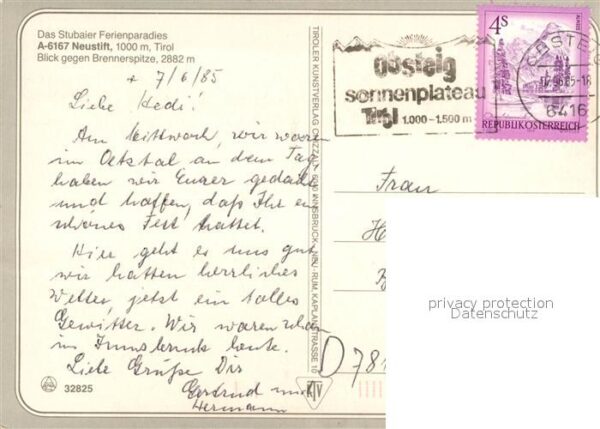 Das Stubaier Ferienparadies
A-6167 Neustift, 1000 m, Tirol
Blick gegen Brennerspitze, 2882 m
7/6/85
Liebe Hedi!
Am Mittwoch, wir waren
im Ötztal an dem Tag,
haben wir Eurer gedacht
und hoffen, daß Ihr ein
schönes Fest hattet.
Hier geht es uns gut
wir hatten herrliches
Wetter, jetzt ein tolles
Gewitter. Wir waren schon
in Innsbruck heute.
Liebe Grüße Dir
Gertrud und
Hermann
32825
TIROLER KUNSTVERLAG CHIZZALI, 6020 INNSBRUCK - NEU-RUM, KAPLANSTRASSE 10
KIV
obsteig
sonnenplateau
Tirol 1.000-1.500 m
4S
REPUBLIK ÖSTERREICH
OBSTEIG
6416
Frau
H
D 781
privacy protection
Datenschutz